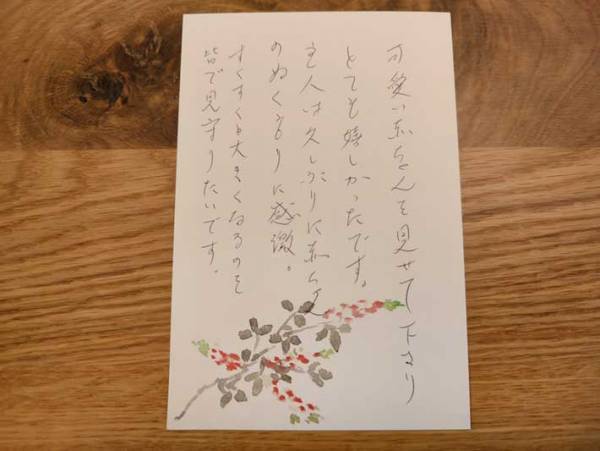 可愛い赤ちゃんを見せて下さり
とても嬉しかったです。
主人は久しぶりに赤ちゃん
のぬくもりに感激。
すくすくと大きくなるのを
皆で見守りたいです。